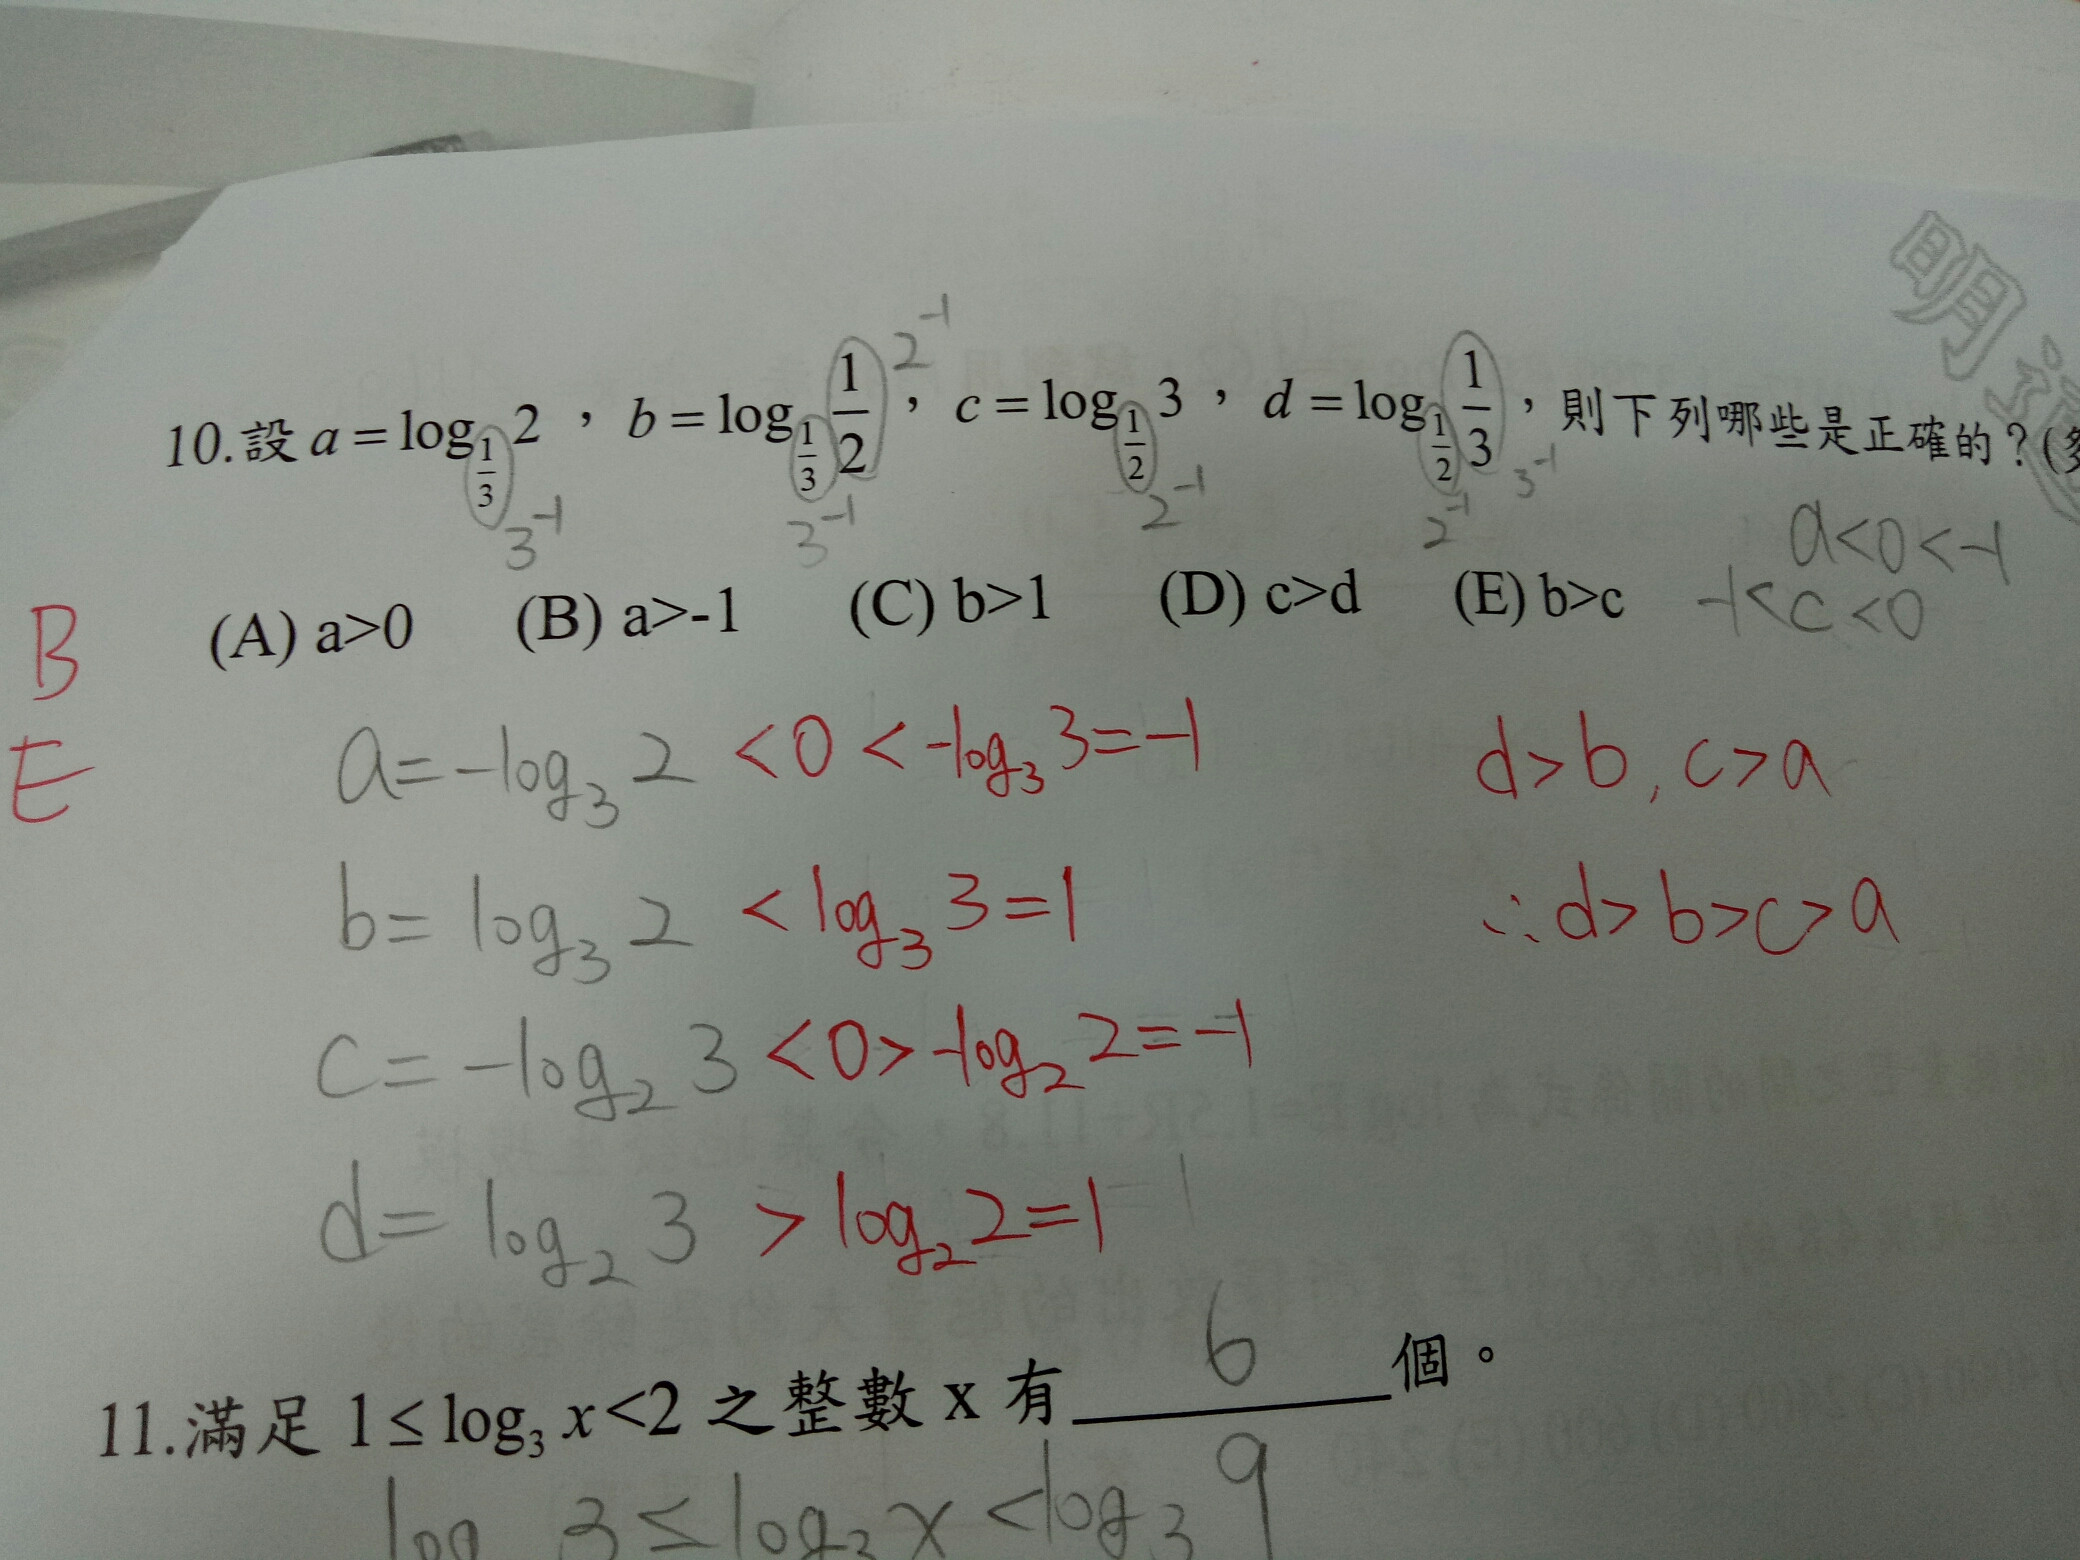 明道
2⁻¹
10.設 a = log_{1/3} 2 , b = log_{1/3} 1/2 , c = log_{1/2} 3 , d = log_{1/2} 1/3 , 則下列哪些是正確的?(多
3⁻¹ 3⁻¹ 2⁻¹ 2⁻¹ 3⁻¹
a<0<-1
(A) a>0 (B) a>-1 (C) b>1 (D) c>d (E) b>c
-1<c<0
B
E
a=-log₃2 <0<-log₃3=-1
d>b, c>a
b=log₃2 <log₃3=1
∴d>b>c>a
c=-log₂3 <0>-log₂2=-1
d=log₂3 >log₂2=1
11.滿足 1≤log₃x<2 之整數 x 有 6 個。
log 3≤log₃x<log₃9